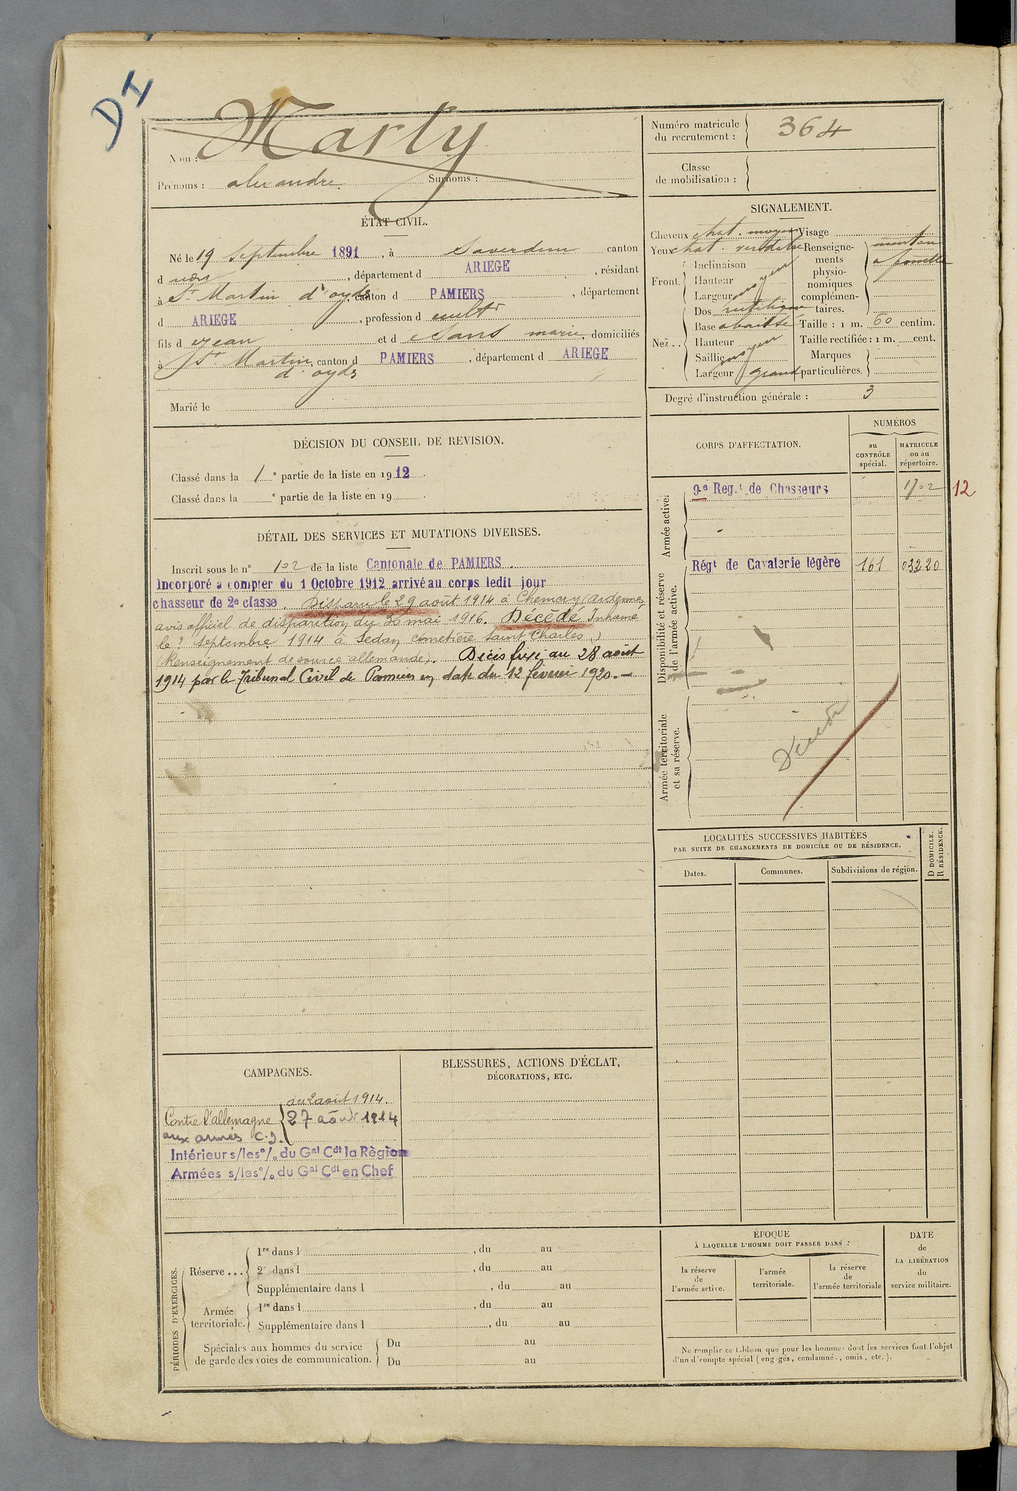 DI
Marty
Nom :
Prénoms : alexandre Surnoms :
Numéro matricule du recrutement : 364
Classe de mobilisation :
ÉTAT CIVIL.
Né le 19 Septembre 1891, à Saverdun canton
d udit, département d ARIEGE, résidant
à St Martin d'oyds canton d PAMIERS, département
d ARIEGE, profession d cultr
fils d Jean et d Sans marie, domiciliés
à St Martin d'oyds, canton d PAMIERS, département d ARIEGE
Marié le
SIGNALEMENT.
Cheveux chat. moyen Visage
Yeux chat. verdâtre Renseignements physionomiques complémentaires. menton à fossette
Front. Inclinaison
Hauteur moyen
Largeur
Nez.. Dos rectiligne
Base abaissée Taille : 1 m. 60 centim.
Hauteur Taille rectifiée : 1 m. cent.
Saillie moyen Marques particulières.
Largeur grand
Degré d'instruction générale : 3
DÉCISION DU CONSEIL DE REVISION.
Classé dans la 1e partie de la liste en 1912.
Classé dans la e partie de la liste en 19
DÉTAIL DES SERVICES ET MUTATIONS DIVERSES.
Inscrit sous le n° 102 de la liste Cantonale de PAMIERS.
Incorporé à compter du 1 Octobre 1912 arrivé au corps ledit jour
chasseur de 2e classe. Disparu le 29 août 1914 à Chemery (Ardennes)
avis officiel de disparition du 30 mai 1916. Décédé Inhumé
le ? septembre 1914 à Sedan cimetière Saint Charles
(Renseignement de source allemande). Décès fixé au 28 août
1914 par le Tribunal Civil de Pamiers en date du 12 février 1920.
CORPS D'AFFECTATION.
NUMÉROS
au CONTRÔLE spécial.
MATRICULE ou au répertoire.
Armée active.
9e Regt de Chasseurs 1702 12
Disponibilité et réserve de l'armée active.
Régt de Cavalerie légère 161 03220
Armée territoriale et sa réserve.
LOCALITÉS SUCCESSIVES HABITÉES
PAR SUITE DE CHANGEMENTS DE DOMICILE OU DE RÉSIDENCE.
Dates. Communes. Subdivisions de région.
D DOMICILE.
R RÉSIDENCE.
CAMPAGNES.
Contre l'allemagne du 2 août 1914.
27 août 1914
aux armées
Intérieur s/les o/. du Gal Cdt la Région
Armées s/les o/. du Gal Cdt en Chef
BLESSURES, ACTIONS D'ÉCLAT,
DÉCORATIONS, ETC.
PÉRIODES D'EXERCICES.
Réserve ... 1re dans l , du au
2e dans l , du au
Supplémentaire dans l , du au
Armée territoriale. 1re dans l , du au
Supplémentaire dans l , du au
Spéciales aux hommes du service de garde des voies de communication. Du au
Du au
ÉPOQUE
À LAQUELLE L'HOMME DOIT PASSER DANS :
la réserve de l'armée active.
l'armée territoriale.
la réserve de l'armée territoriale
DATE de LA LIBÉRATION du service militaire.
Ne remplir ce tableau que pour les hommes dont les services font l'objet
d'un décompte spécial (engagés, condamnés, omis, etc.).